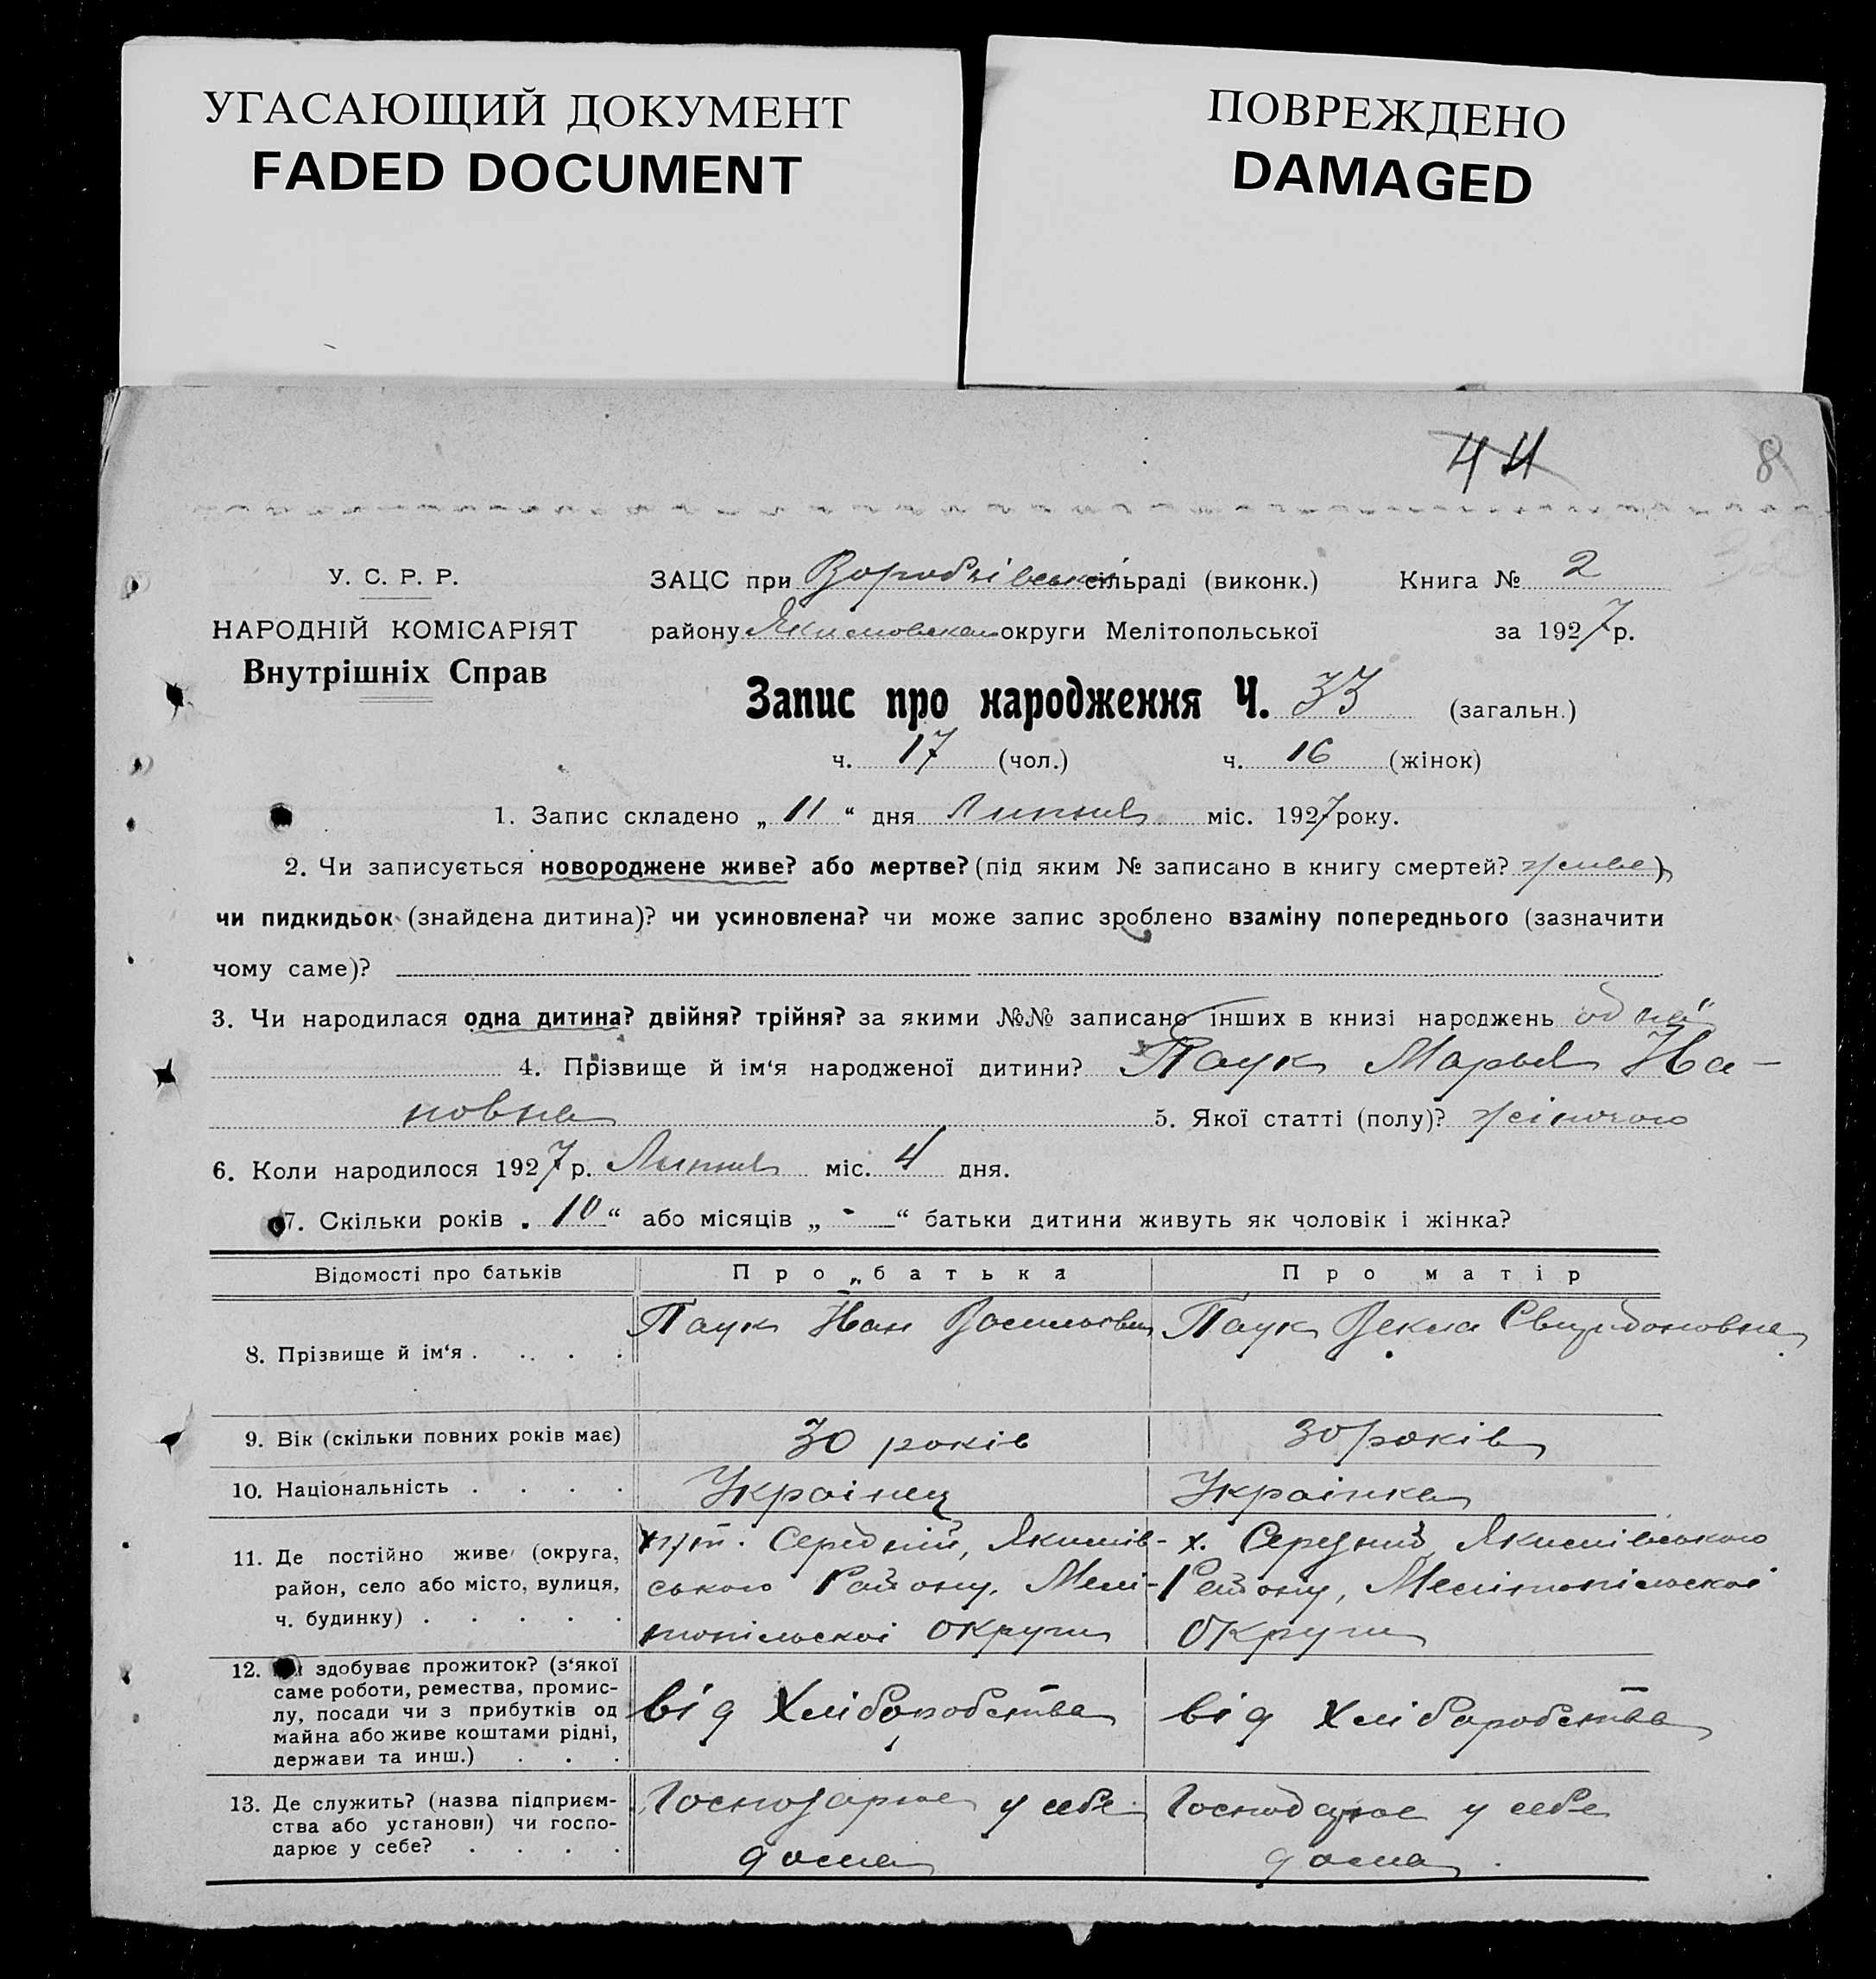 УГАСАЮЩИЙ ДОКУМЕНТ
FADED DOCUMENT
ПОВРЕЖДЕНО
DAMAGED
44
8
У. С. Р. Р.
НАРОДНІЙ КОМІСАРІЯТ
Внутрішніх Справ
ЗАЦС при сільраді (виконк.) Книга № 2
району округи Мелітопольської за 1927 р.
Запис про народження Ч. 33 (загальн.)
ч. 17 (чол.) ч. 16 (жінок)
1. Запис складено „ 11 “ дня Липня міс. 1927 року.
2. Чи записується новороджене живе? або мертве? (під яким № записано в книгу смертей? живе)
чи пидкидьок (знайдена дитина)? чи усиновлена? чи може запис зроблено взаміну попереднього (зазначити
чому саме)?
3. Чи народилася одна дитина? двійня? трійня? за якими №№ записано інших в книзі народжень одна
4. Прізвище й ім‘я народженої дитини? Паук Марья Ива-
новна 5. Якої статті (полу)? жіночого
6. Коли народилося 1927 р. Липня міс. 4 дня.
7. Скільки років „ 10 “ або місяців „ - “ батьки дитини живуть як чоловік і жінка?
Відомості про батьків Про батька Про матір
8. Прізвище й ім‘я . . . . Паук Иван Васильович Паук Векла Свиридоновна
9. Вік (скільки повних років має) 30 років 30 років
10. Національність . . . . Украінец Украінка
11. Де постійно живе (округа,
район, село або місто, вулиця,
ч. будинку) . . . . .
хут. Середній, Якимів-
ського Району, Мелі-
топільскоі Округи
х. Середний Якимівського
Району, Мелітопільскоі
Округи
12. здобуває прожиток? (з‘якої
саме роботи, ремества, промис-
лу, посади чи з прибутків од
майна або живе коштами рідні,
держави та инш.) . . .
від Хліборобства
від Хліборобства
13. Де служить? (назва підприєм-
ства або установи) чи госпо-
дарює у себе? . . . .
Господарює у себе
дома
Господарює у себе
дома.